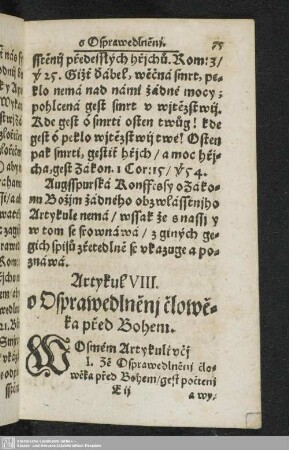 o Osprawedlněnj. 75
sstěnij předesslých hřjchů. Rom: 3/
ỷ 25. Giżť ďábel, wěčná smrt, pe-
klo nemá nad námi žádné mocy;
pohlcená gest smrt w wjtězstwij.
Kde gest ó smrti osten twůg! kde
gest ó peklo wjtězstwij twé! Osten
pak smrti, gestiť hřjch/ a moc hřj-
cha, gest Zákon. 1 Cor: 15/ ỷ 54.
Augsspurská Konffessy o Záko-
nu Božjm žádného obzwlásstnjho
Artykule nemá/ wssak že s nassj y
w tom se srownáwá/ z giných ge-
gich spisů zřetedlně se vkazuge a po-
znáwá.
Artykul VIII.
o Osprawedlněnj člowě-
ka před Bohem.
W Osmém Artykuli věj
1. Žě Osprawedlněnj člo-
wěka před Bohem/ gest počtenj
E ij a wy-